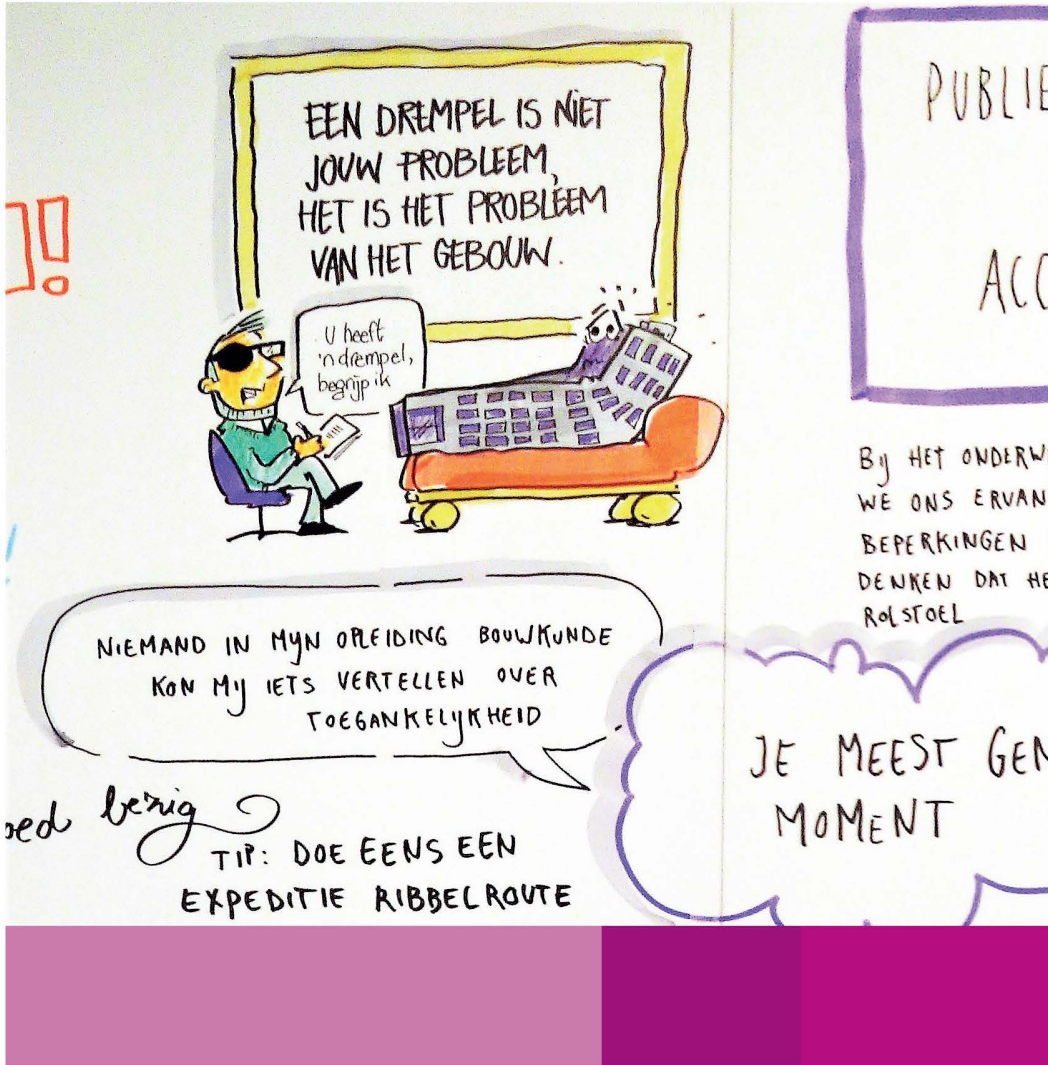 EEN DREMPEL IS NIET
JOUW PROBLEEM,
HET IS HET PROBLEEM
VAN HET GEBOUW.
U heeft
'n drempel,
begrijp ik
NIEMAND IN MIJN OPLEIDING BOUWKUNDE
KON MIJ IETS VERTELLEN OVER
TOEGANKELIJKHEID
bezig
TIP: DOE EENS EEN
EXPEDITIE RIBBELROUTE
BIJ HET
WE ONS
BEPERKINGEN
DENKEN DAT
ROLSTOEL
JE MEEST
MOMENT